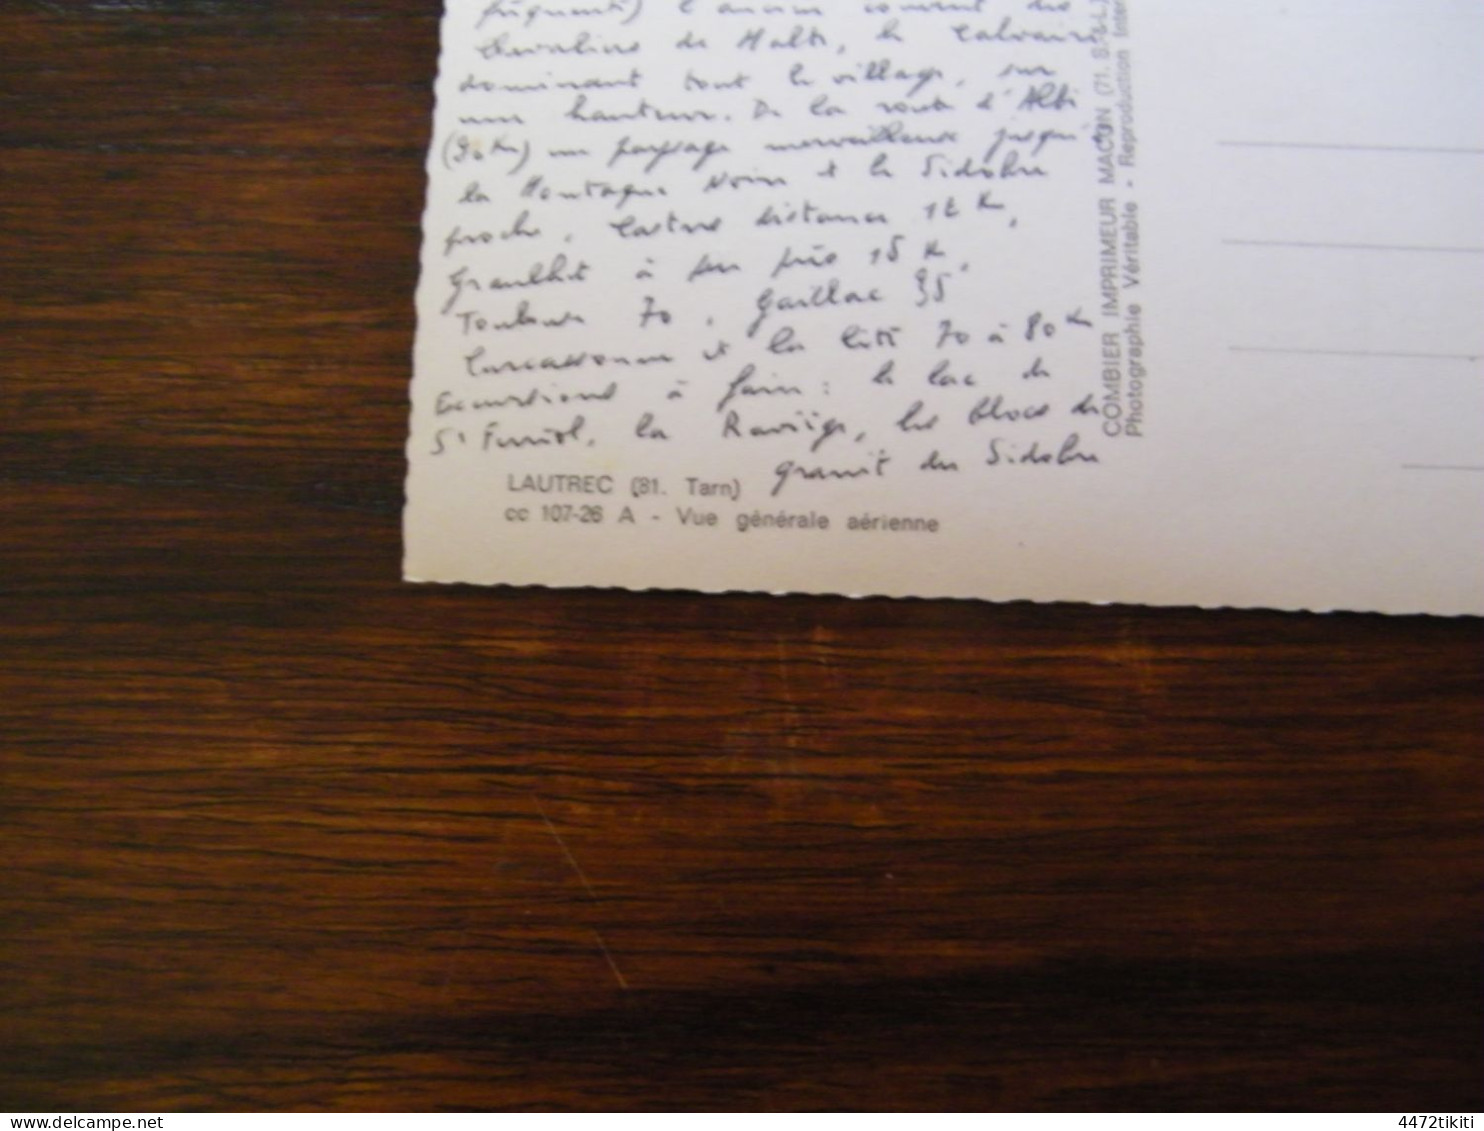 fréquenté) l'ancien couvent des
Chevaliers de Malte, le Calvaire
dominant tout le village, sur
une hauteur. De la route d'Albi
(30 Km) un paysage merveilleux jusqu'à
la Montagne Noire et le Sidobre
proche, Castres distance 12 K,
Graulhet à peu près 15 K,
Toulouse 70, Gaillac 35
Carcassonne et la Cité 70 à 80 K
Excursions à faire : le lac de
St Ferréol, la Raviège, les blocs de
granit du Sidobre
LAUTREC (81. Tarn)
cc 107-26 A - Vue générale aérienne
COMBIER IMPRIMEUR MACON (71. S.-L.)
Photographie Véritable - Reproduction Inter
delcampe.net
4472tikiti